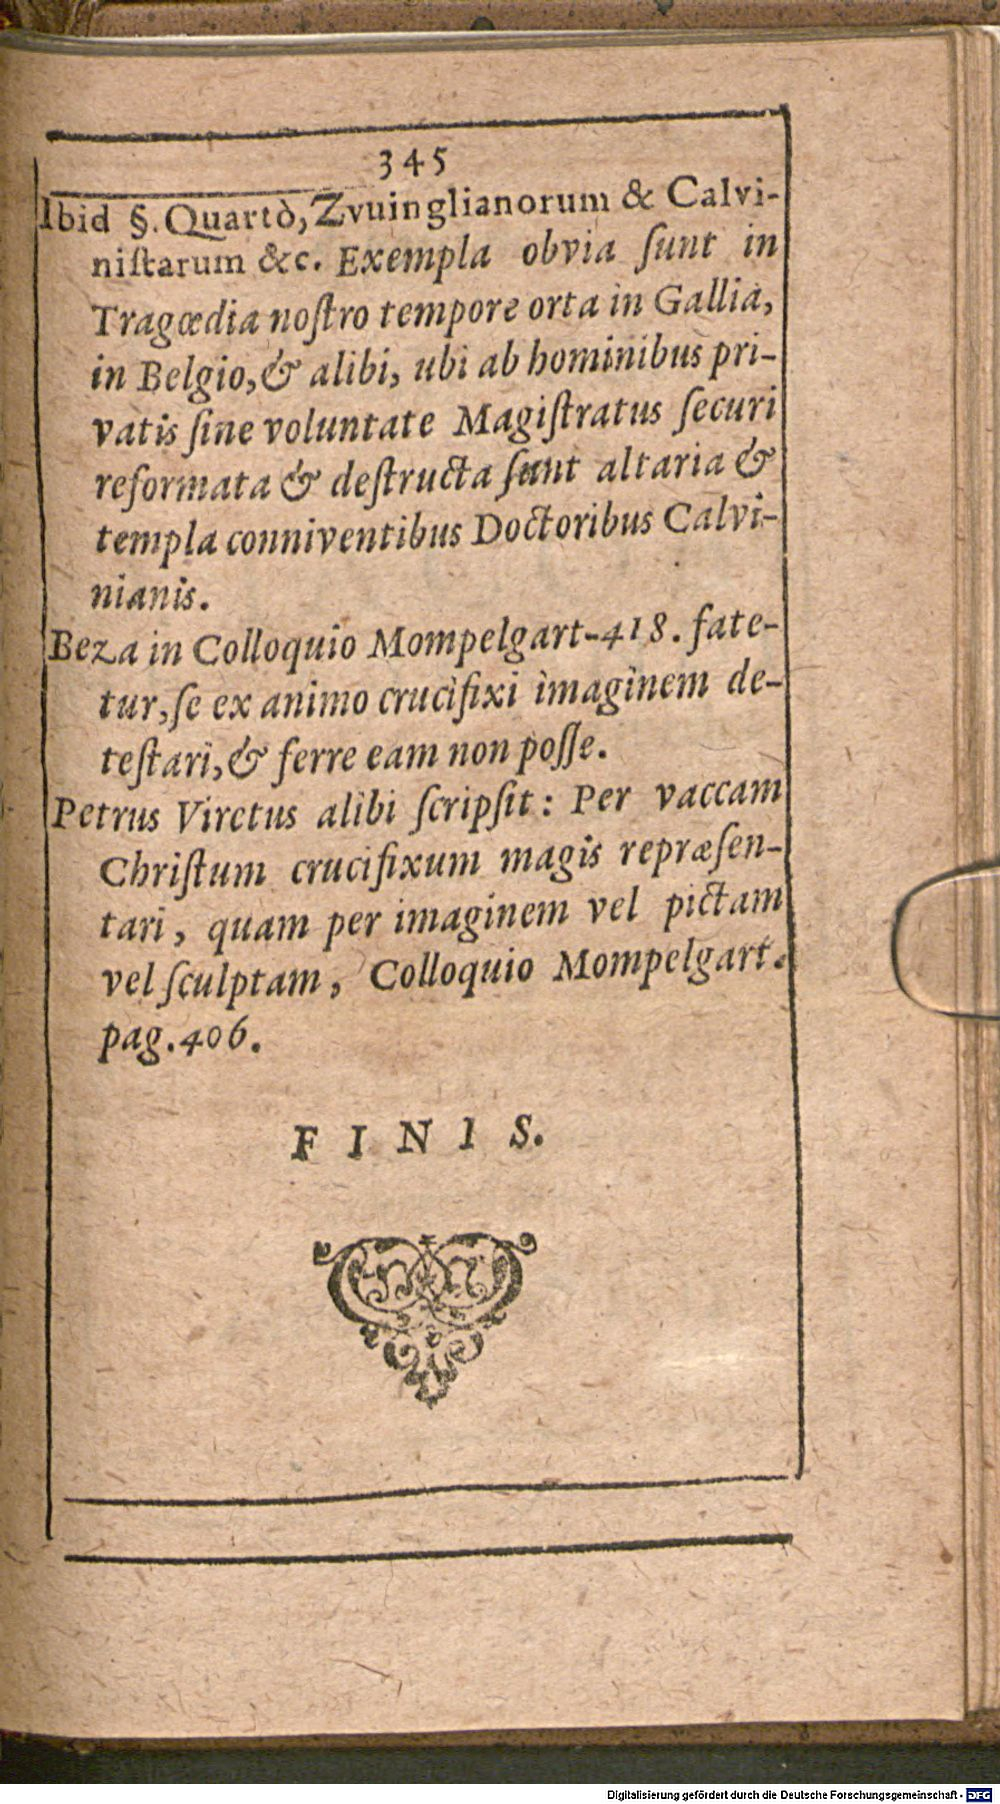 345
Ibid §. Quartò, Zvuinglianorum & Calvi-
niſtarum &c. Exempla obvia ſunt in
Tragœdia noſtro tempore orta in Gallia,
in Belgio, & alibi, ubi ab hominibus pri-
vatis ſine voluntate Magiſtratus ſecuri
reformata & deſtructa ſunt altaria &
templa conniventibus Doctoribus Calvi-
nianis.
Beza in Colloquio Mompelgart-418. fate-
tur, ſe ex animo crucifixi imaginem de-
teſtari, & ferre eam non poſſe.
Petrus Viretus alibi ſcripſit: Per vaccam
Chriſtum crucifixum magis repræſen-
tari, quam per imaginem vel pictam
vel ſculptam, Colloquio Mompelgart.
pag. 406.
FINIS.
Digitalisierung gefördert durch die Deutsche Forschungsgemeinschaft - DFG